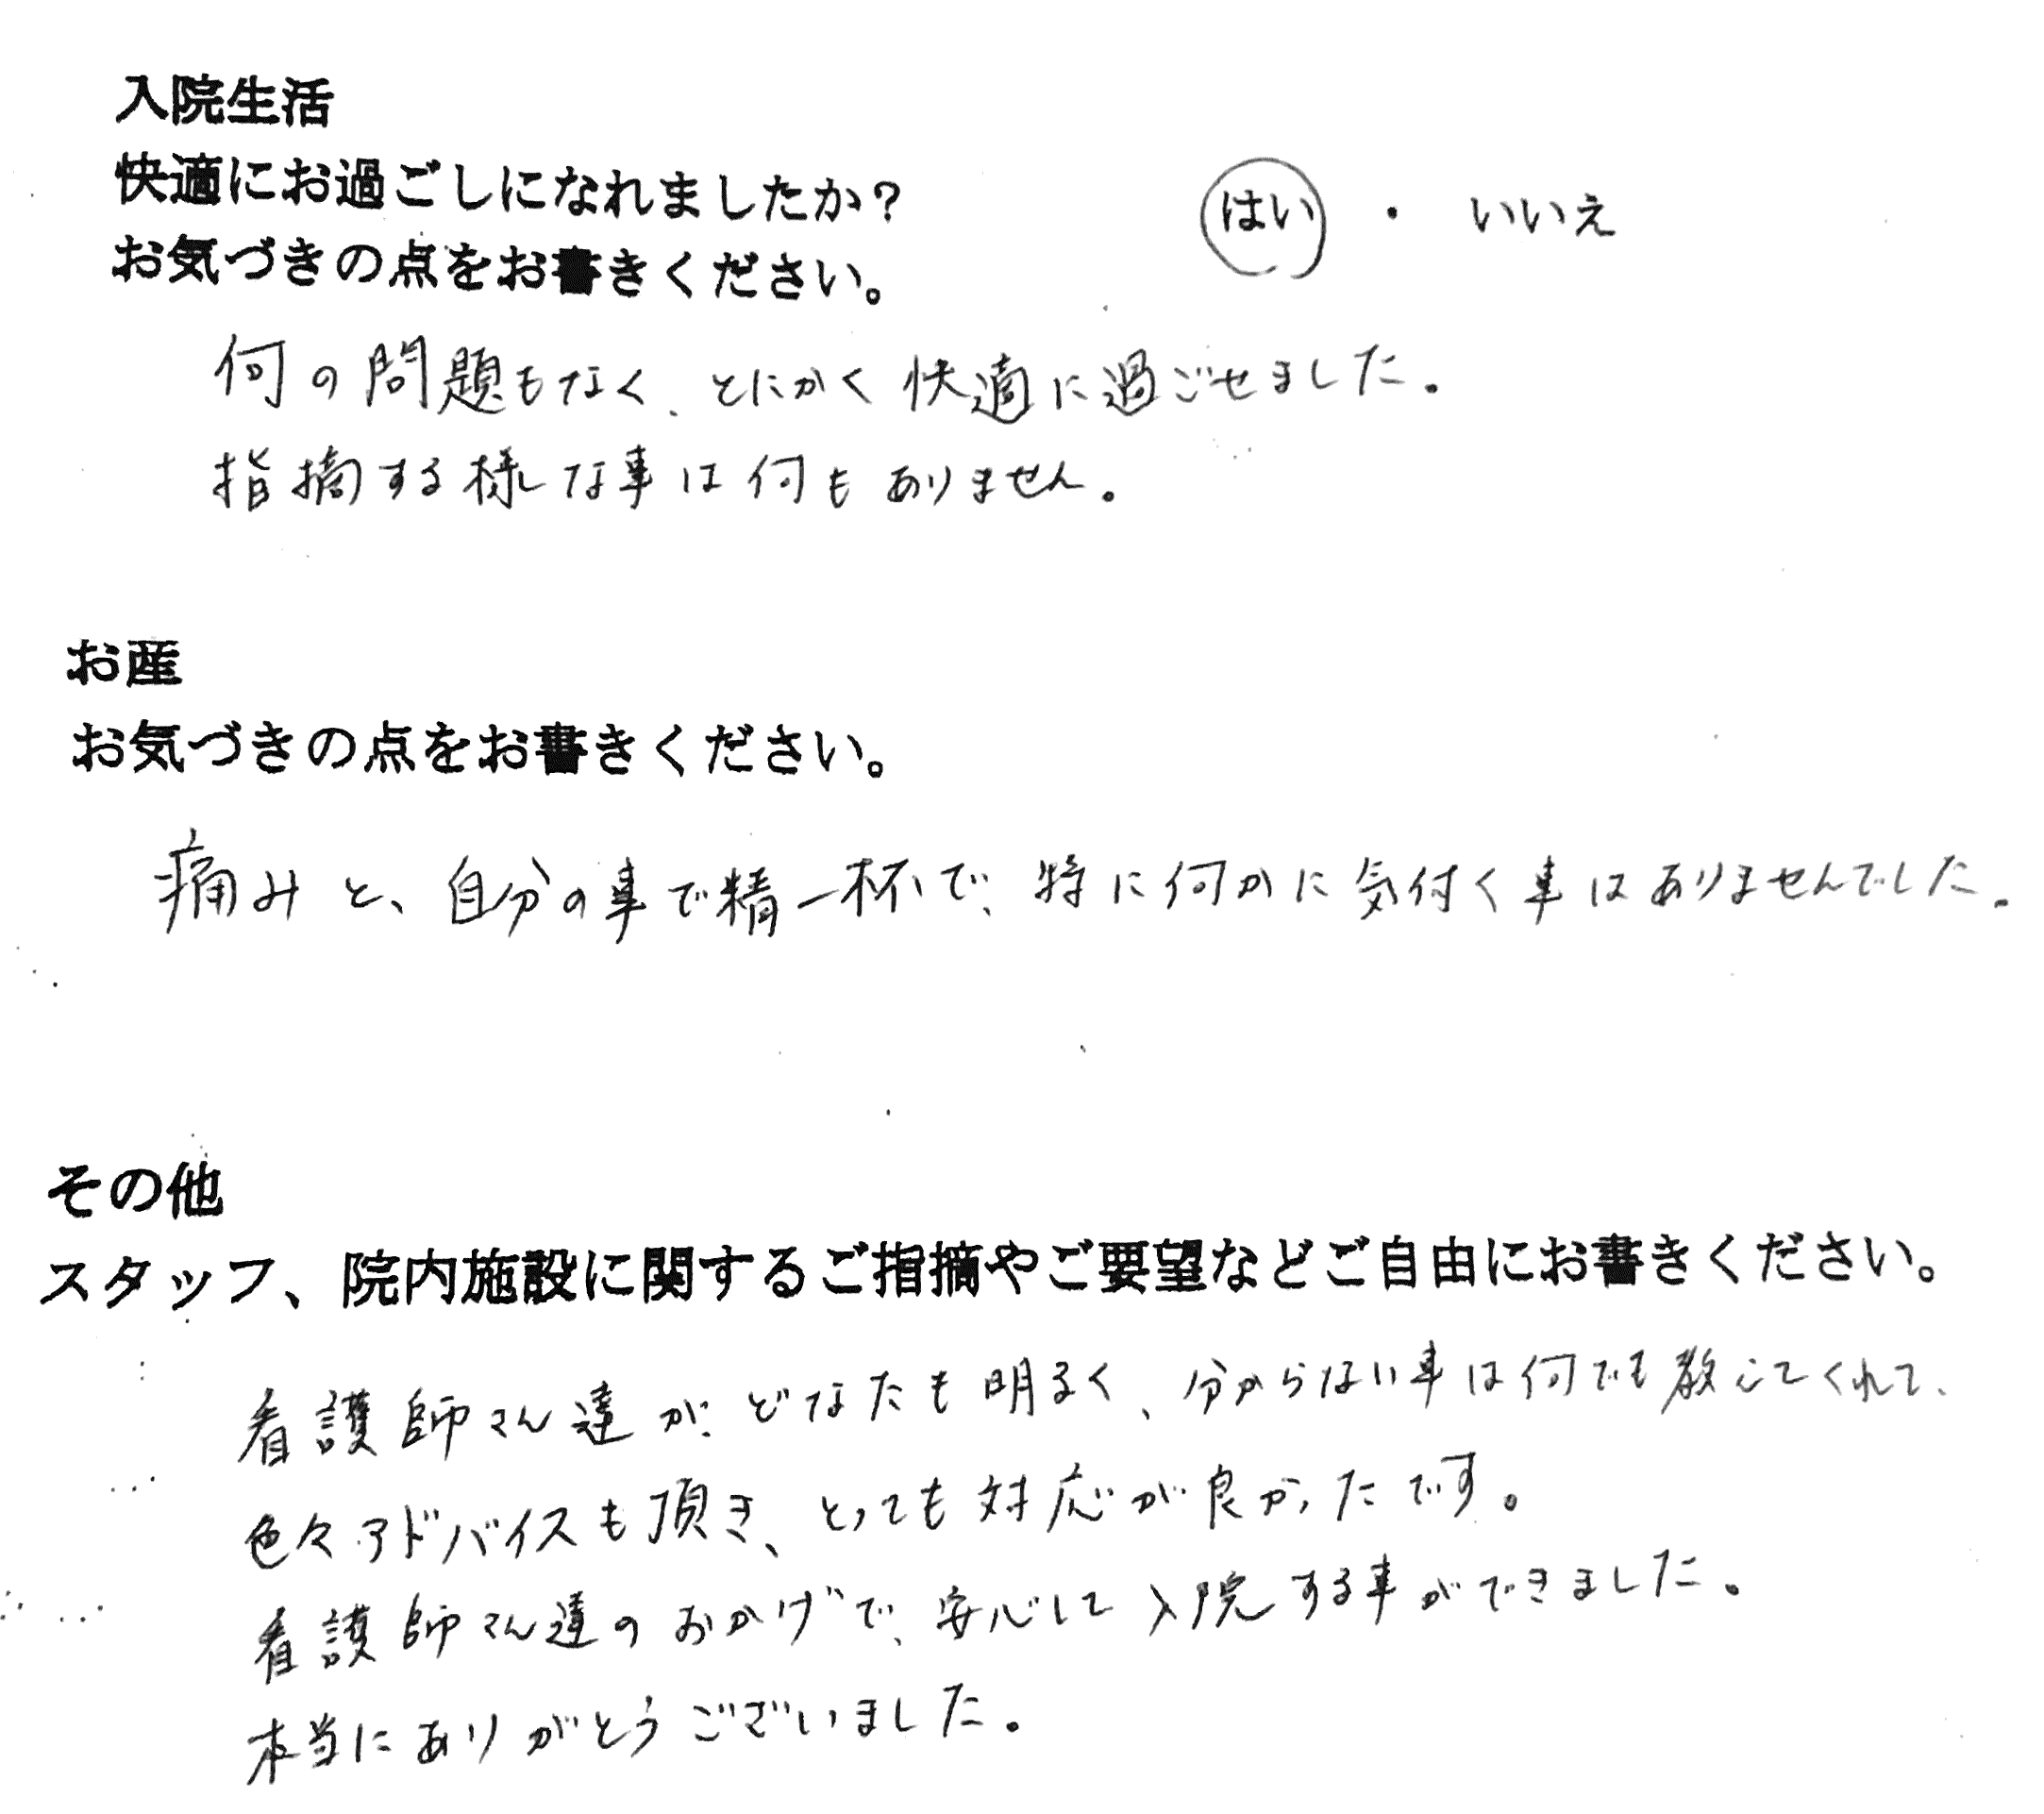 入院生活
快適にお過ごしになれましたか？
はい ・ いいえ
お気づきの点をお書きください。
何の問題もなく、とにかく快適に過ごせました。
指摘する様な事は何もありません。
お産
お気づきの点をお書きください。
痛みと、自分の事で精一杯で、特に何かに気付く事はありませんでした。
その他
スタッフ、院内施設に関するご指摘やご要望などご自由にお書きください。
看護師さん達が、どなたも明るく、分からない事は何でも教えてくれて、
色々アドバイスも頂き、とっても対応が良かったです。
看護師さん達のおかげで、安心して入院する事ができました。
本当にありがとうございました。